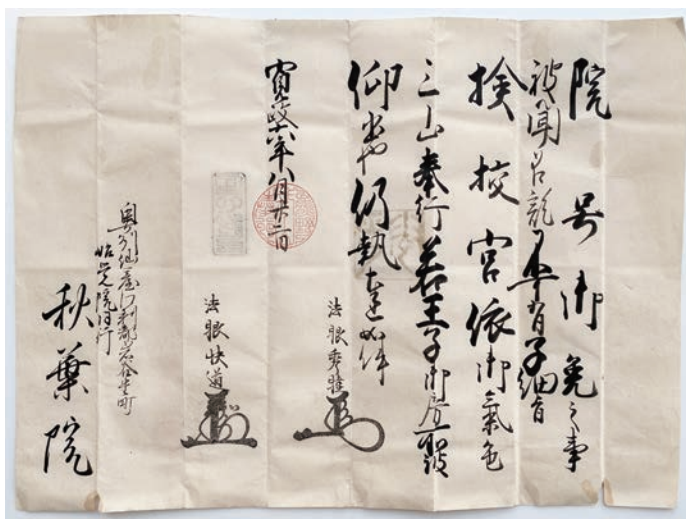 院号御免之事
被聞召訖子細旨
捡挍宮依御氣色
三山奉行若王子御房所被
仰出也仍執達如件
寛政六年八月廿二日
法眼
法眼快道
奥州仙臺江刺郡岩谷堂町
院同行
秋葉院